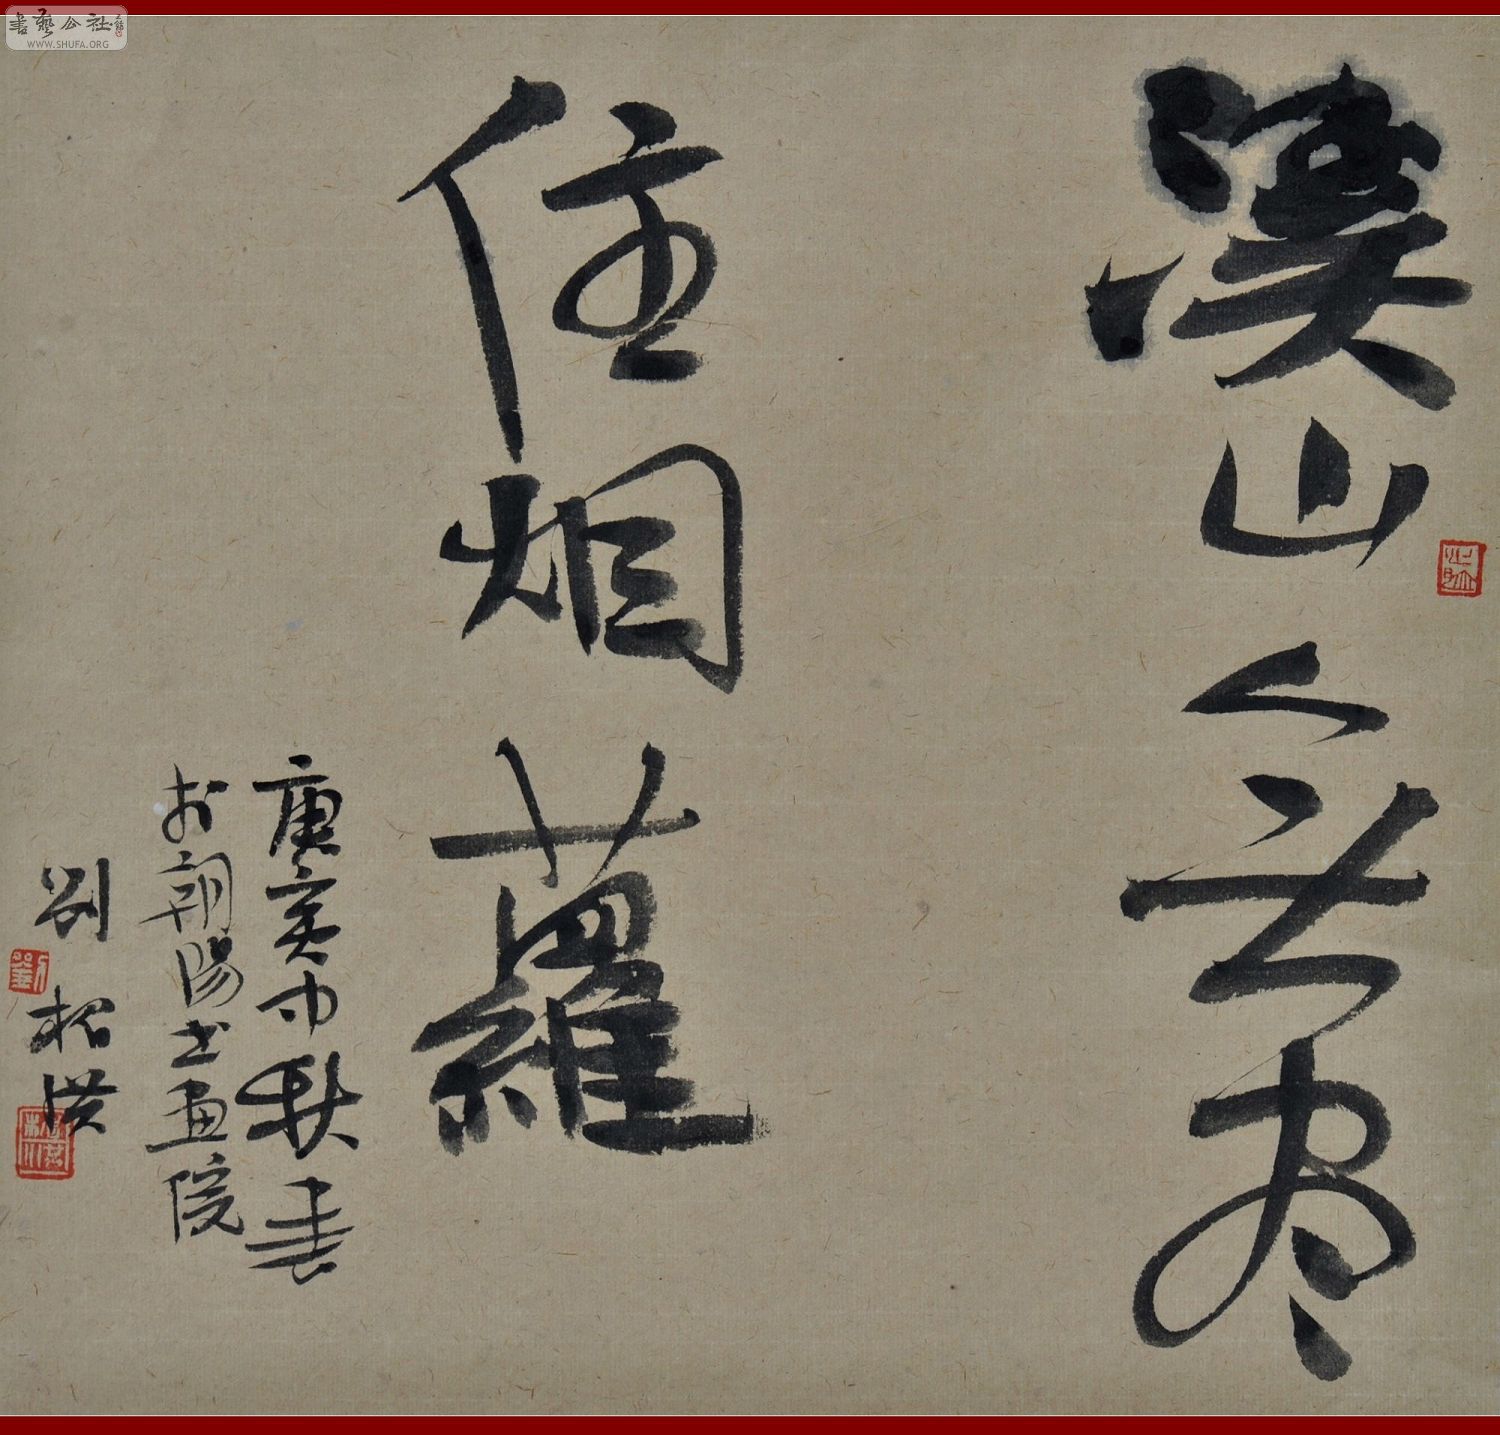 書藝公社
WWW.SHUFA.ORG
溪山無盡
住烟蘿
庚寅中秋書
於朝陽書画院
劉